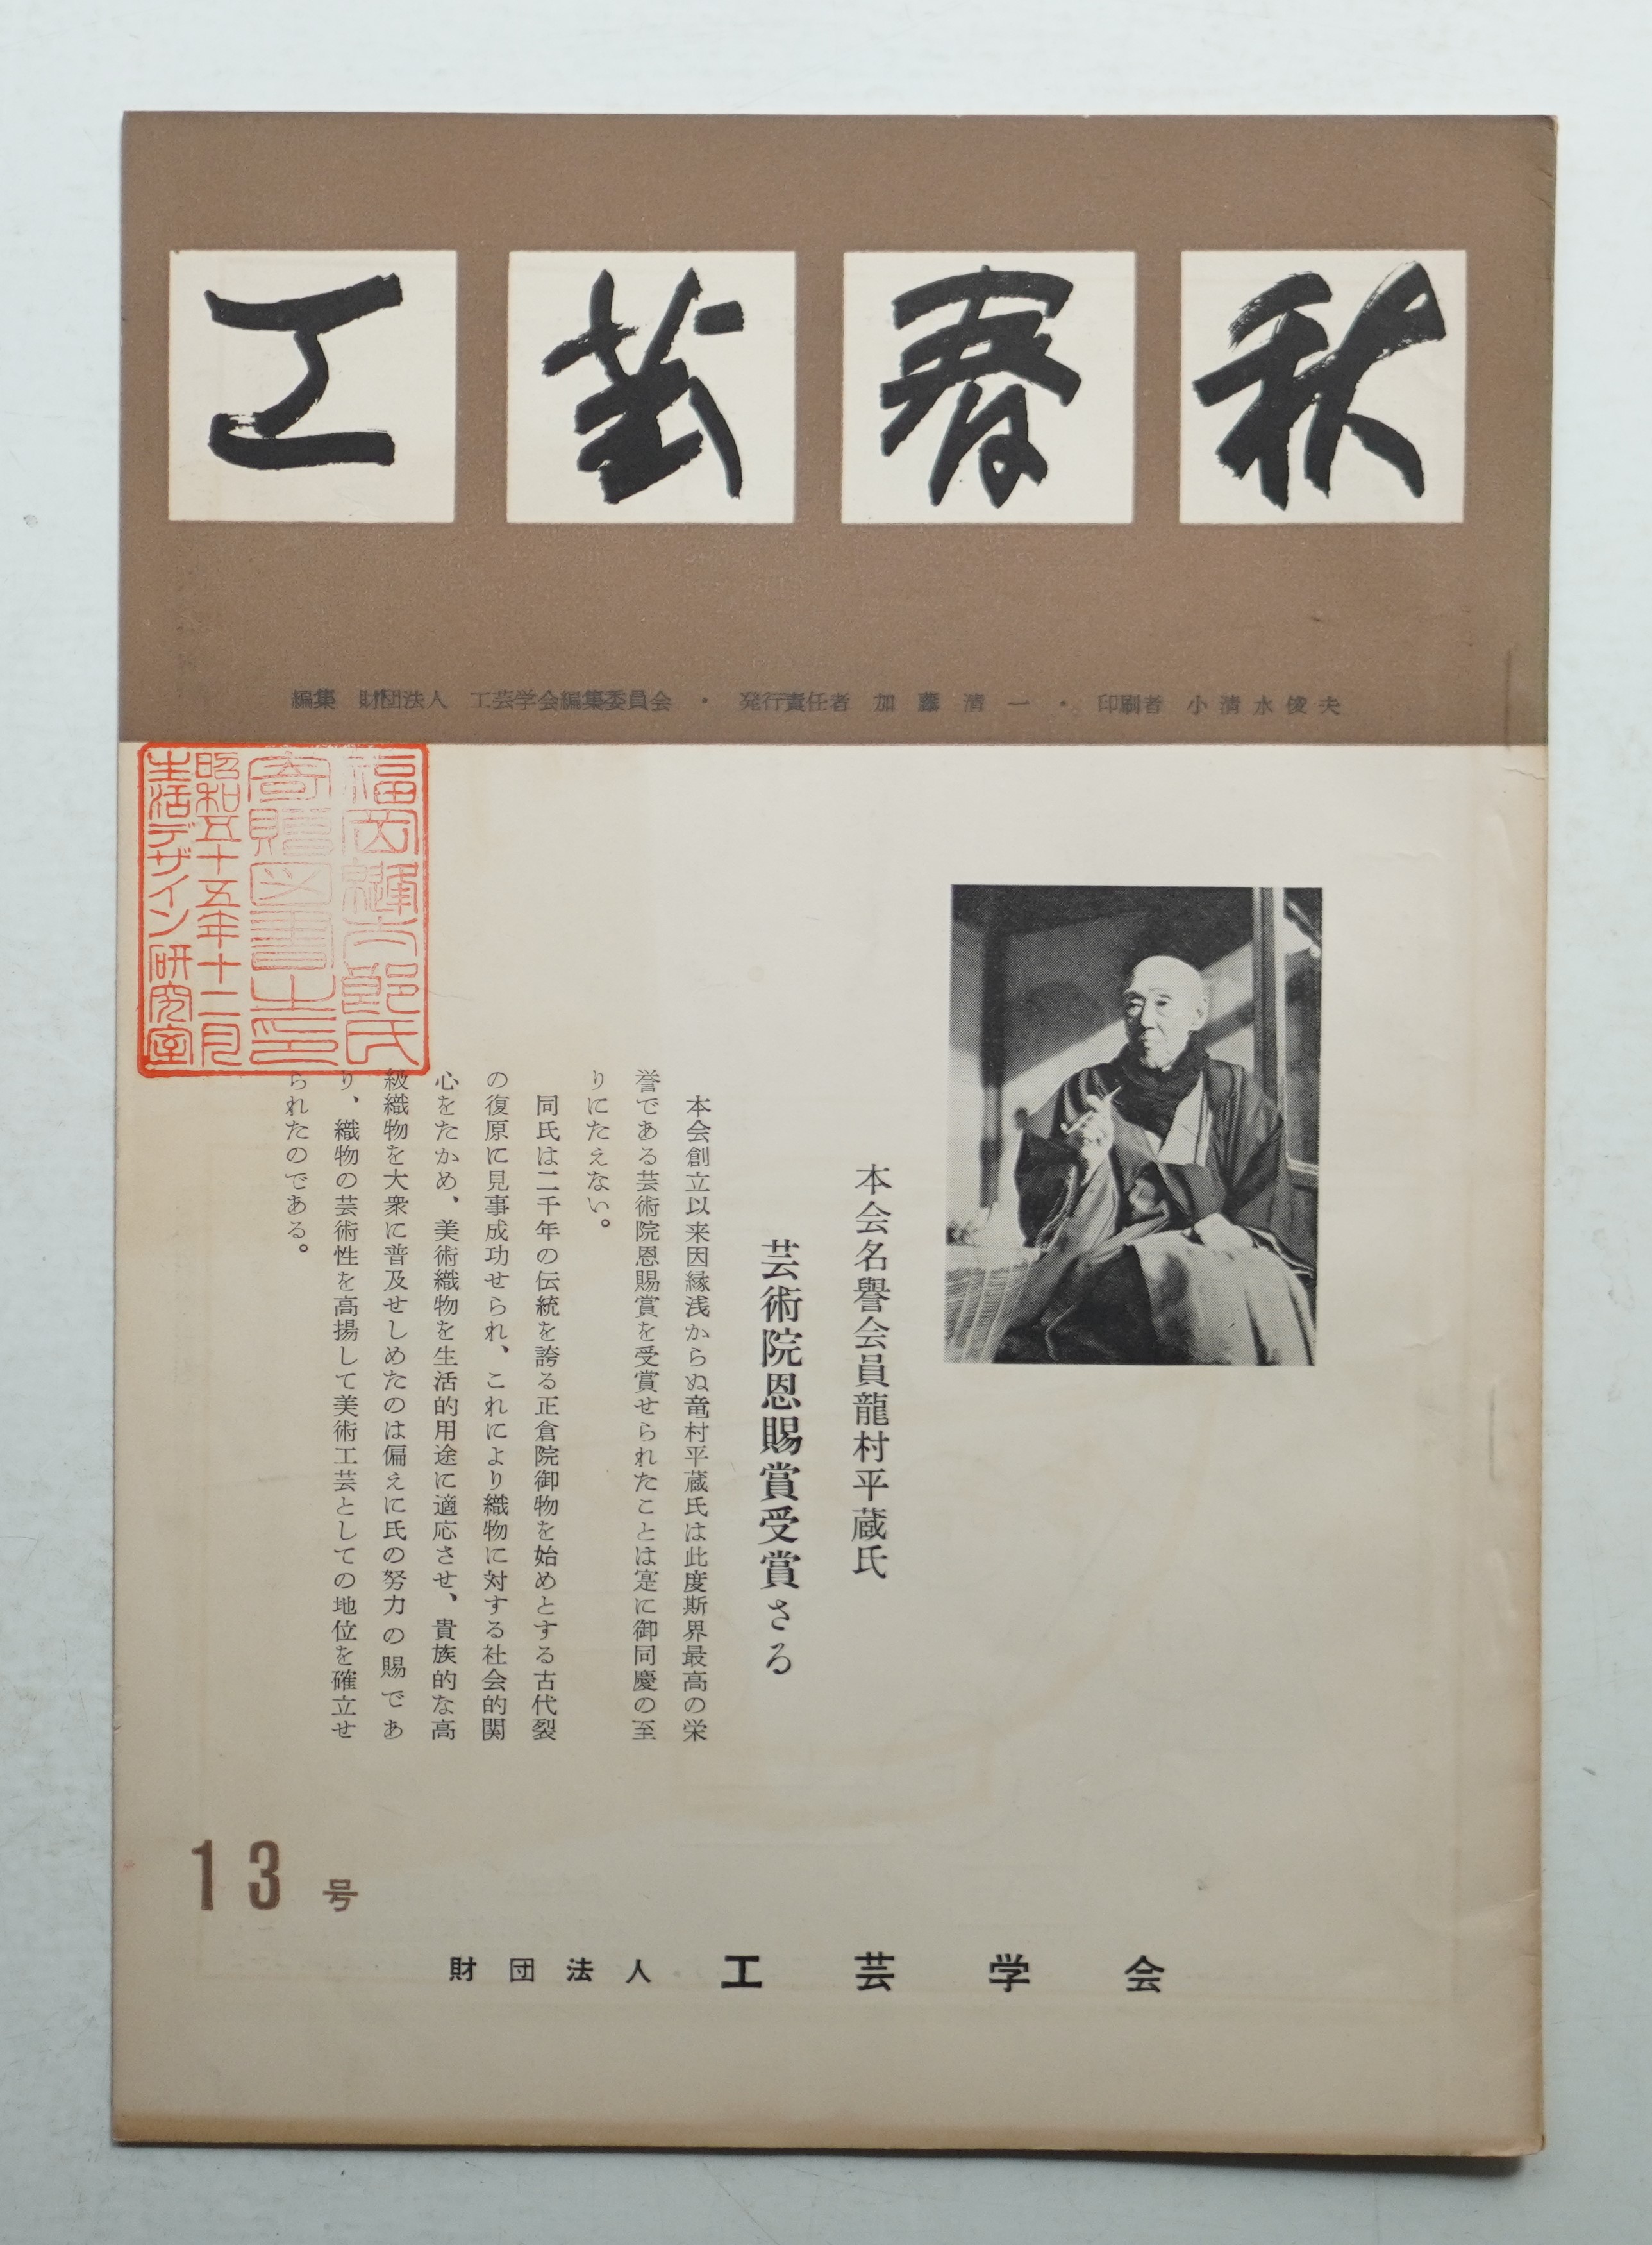 工芸春秋
編集 財団法人 工芸学会編集委員会 ・ 発行責任者 加藤清一 ・ 印刷者 小清水俊夫
福岡縫太郎氏
寄贈図書之印
昭和五十五年十二月
生活デザイン研究室
本会名誉会員龍村平蔵氏
芸術院恩賜賞受賞さる
本会創立以来因縁浅からぬ竜村平蔵氏は此度斯界最高の栄
誉である芸術院恩賜賞を受賞せられたことは寔に御同慶の至
りにたえない。
同氏は二千年の伝統を誇る正倉院御物を始めとする古代裂
の復原に見事成功せられ、これにより織物に対する社会的関
心をたかめ、美術織物を生活的用途に適応させ、貴族的な高
級織物を大衆に普及せしめたのは偏えに氏の努力の賜であ
り、織物の芸術性を高揚して美術工芸としての地位を確立せ
られたのである。
13号
財団法人 工芸学会